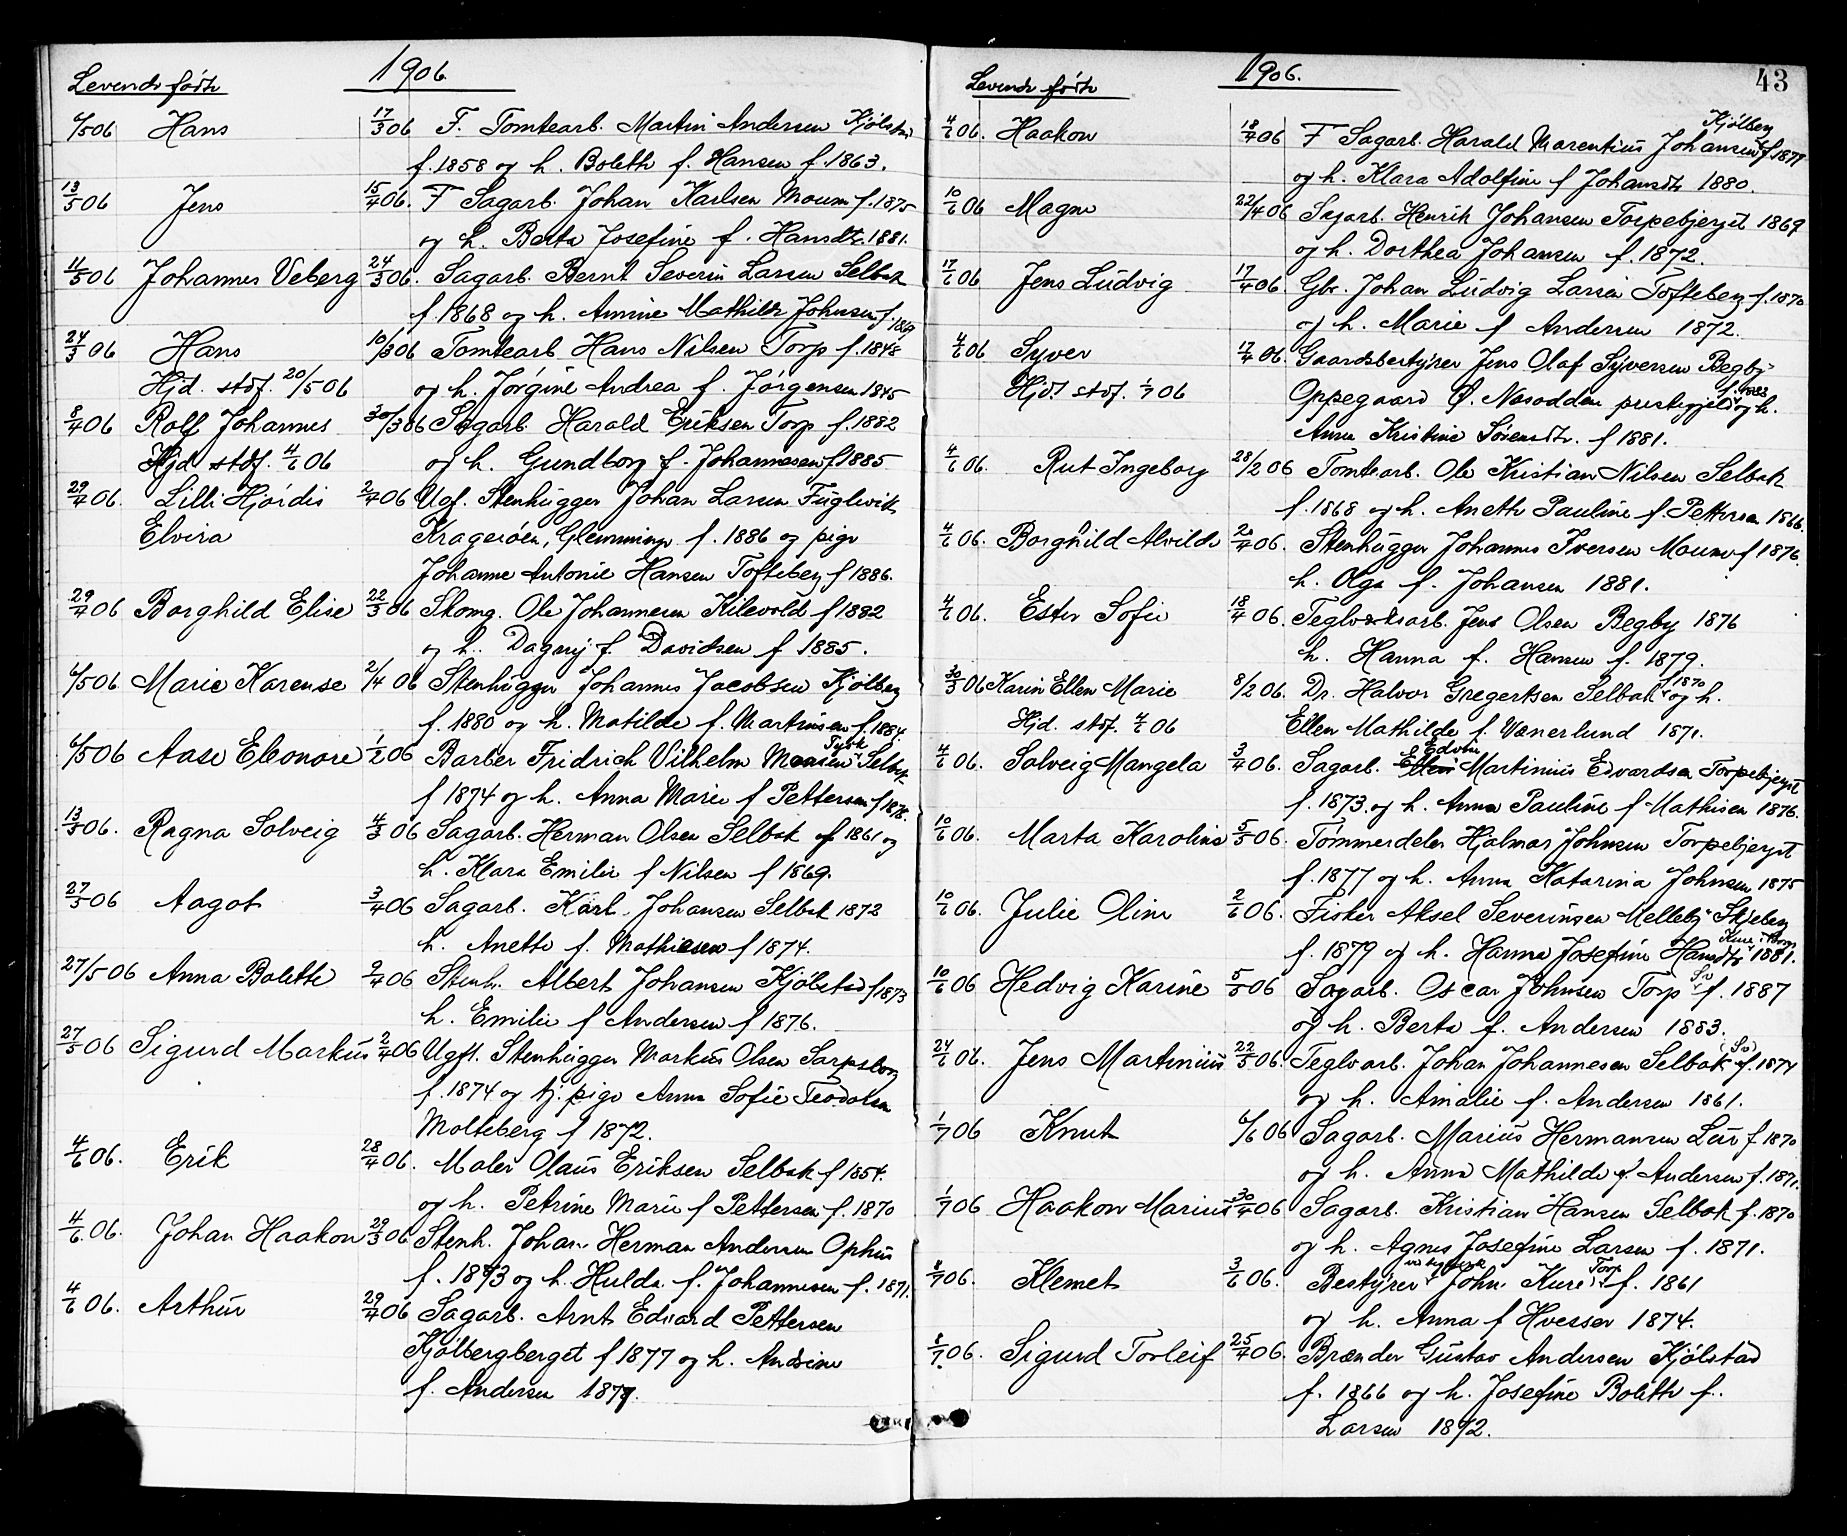 Levende fødte 1906
6/5 06 Hans 17/3 06 F. Tomtearb. Martin Andersen Kjølstad
f. 1858 og h. Boleth f. Hansen f. 1863.
13/5 06 Jens 15/4 06. F Sagarb. Johan Karlsen Moum f. 1875
og h. Berta Josefine f. Hansdtr. 1881.
Johannes Veberg 24/3 06. Sagarb. Bernt Severin Larsen Selbak
f. 1868 og h. Amine Mathilde Johnsen f. 1869
24/3 06 Hans 10/3 06 Tomtearb Hans Nilsen Torp f. 1848
Hjd. stdf. 20/5 06 og h. Jørgine Andrea f. Jørgensen 1845
8/4 06 Rolf Johannes 30/3 06 Sagarb. Harald Eriksen Torp f. 1882
Hjd stdf. 4/6 06 og h. Gundborg f. Johannesen f 1885
29/4 06. Lilli Hjørdis 2/4 06 Ugf. Stenhugger Johan Larsen Fuglevik
Elvira Kragerøen, Glemminge f. 1886 og pige
Johanne Antonie Hansen Tofteberg f 1886.
29/4 06 Borghild Elise 22/3 06 Skomg. Ole Johannesen Kilevold f 1882
og h. Dagny f. Davidsen f 1885.
6/5 06 Marie Karense 2/4 06 Stenhugger Johannes Jacobsen Kjølberg
f. 1880 og h. Matilde f. Martinsen f. 1884.
Tysk
6/5 06 Aase Eleonore 1/2 06 Barber Fridrich Vilhelm Monsen Selbak
f 1874 og h. Anna Marie f Pettersen f 1878.
13/5 06. Ragna Solveig 4/3 06 Sagarb. Herman Olsen Selbak f 1861 og
h. Klara Emilie f Nilsen f 1869.
27/5 06 Aagot 3/4 06 Sagarb. Karl Johansen Selbak 1872
h. Anette f. Mathiesen f 1874.
27/5 06 Anna Bolette 2/4 06 Stenh. Albert Johansen Kjølstad f 1873
h. Emilie f Andersen f 1876.
27/5 06 Sigurd Markus 2/4 06 Ugft. Stenhugger Markus Olsen Sarpsborg
f. 1874 og tj. pige Anna Sofie Teodorsen
Molteberg f 1872.
4/6 06. Erik 28/4 06. Maler Olaus Eriksen Selbak f 1854.
og h. Petrine Marie f Pettersen f. 1870
4/6 06. Johan Haakon 29/3 06 Stenh. Johan Herman Andersen Ophus
f. 1873 og h. Hulda f. Johannesen f. 1871.
4/6 06. Arthur 29/4 06 Sagarb. Arnt Edvard Pettersen
Kjølbergberget f 1877 og h. Andrine
f. Andersen 1877.
43
Levende fødte 1906.
Kjølberg
4/6 06. Haakon 18/4 06 F Sagarb. Harald Marentius Johansen f 1877
og h. Klara Adolfine f Johansdtr 1880.
10/6 06 Magne 22/4 06 Sagarb. Henrik Johansen Torpebjerget 1869
og h. Dorthea Johansen f. 1872.
17/6 06 Jens Ludvig 17/4 06. Gbr. Johan Ludvig Larsen Tofteberg f. 1870
og h. Marie f Andersen 1872.
4/6 06 Syver 17/4 06. Gaardsbestyrer Jens Olaf Syversen Begby
Hjd. stdf. 1/7 06 Oppegaard Ø. Nesodden prestegjeld f. 1882 og h.
Anna Kristine Sørensdtr. f 1881.
4/6 06. Rut Ingeborg 28/2 06 Tomtearb. Ole Kristian Nilsen Selbak
f. 1868 og h. Aneth Pauline f. Pettersen 1866.
4/6 06. Borghild Alvilde 2/4 06. Stenhugger Johannes Iversen Moum f 1876.
h. Olga f. Johansen 1881.
4/6 06. Ester Sofie 18/4 06. Teglverksarb. Jens Olsen Begby 1876
h. Hanna f. Hansen f. 1879.
30/3 06 Karin Ellen Marie 8/2 06. Dr. Halvor Gregertsen Selbak f 1870 og h.
Hjd. stdf. 4/6 06 Ellen Mathilde f. Wenerlund 1871.
Edvin
4/6 06. Solveig Mangela 3/4 06. Sagarb. Martinius Edvardsen Torpebjerget
f. 1873 og h. Anna Pauline f Mathisen 1876.
10/6 06. Marta Karoline 5/5 06. Tømmerdeler Hjalmar Johnsen Torpebjerget
f. 1877 og h. Anna Katarina Johnsen 1875
10/6 06. Julie Oline 2/6 06. Fisker Aksel Severinsen Mellebø Skjeberg
f. 1879 og h. Hanna Josefine Hansdtr 1881.
10/6 06 Hedvig Karine 5/5 06 Sagarb. Oscar Johnsen Torp f. 1887
og h. Berta f. Andersen 1883.
24/6 06. Jens Martinius 22/5 06. Teglvarb. Johan Johannesen Selbak f. 1874
og h. Amalie f. Andersen 1861.
1/7 06 Knut 6/6 06 Sagarb. Marius Hermansen Lur f 1870
og h. Anna Mathilde f. Andersen f. 1871.
1/7 06 Haakon Marius 30/4 06 Sagarb. Kristian Hansen Selbak f. 1870
og h. Agnes Josefine Larsen f. 1871.
Torp
8/7 06. Klemet 3/6 06. Bestyrer John Kure f. 1861
og h. Anna f Hvesser 1874.
8/7 06. Sigurd Torleif 25/4 06. Brænder Gustav Andersen Kjølstad
f. 1866 og h. Josefine Boleth f.
Larsen 1872.